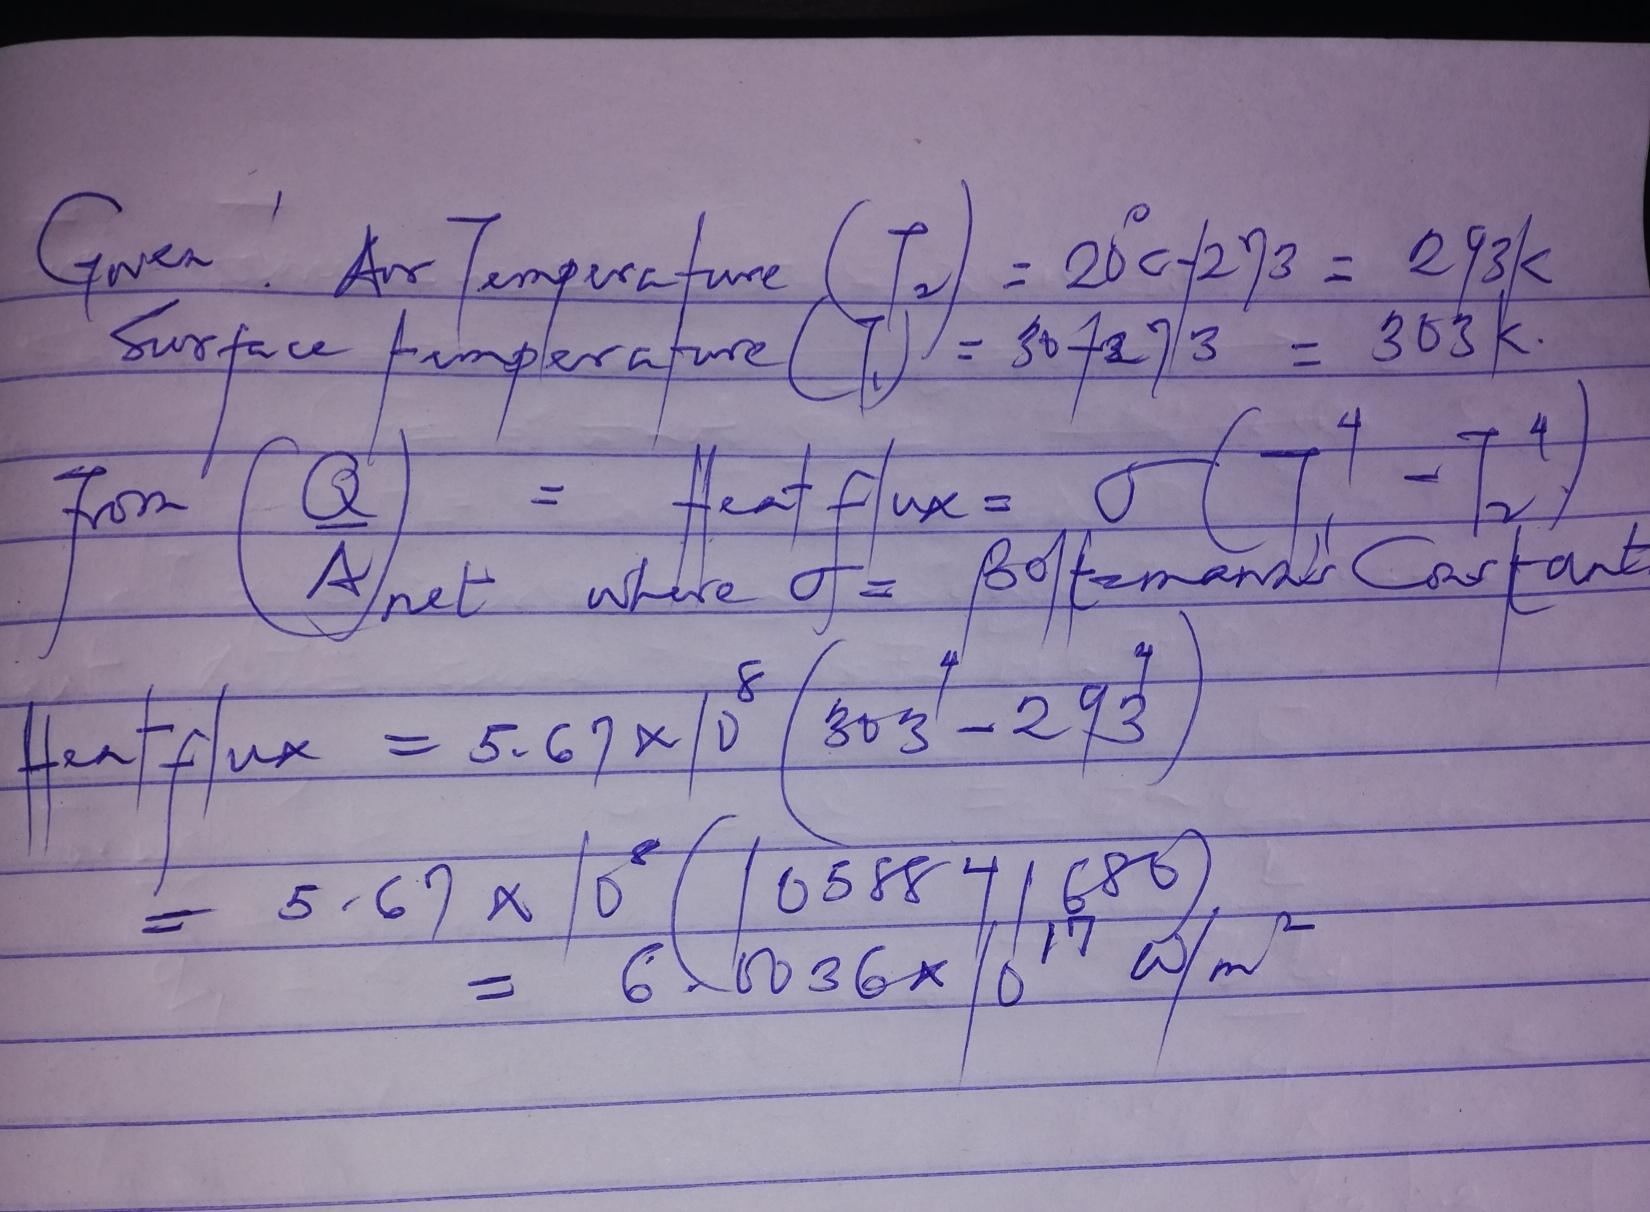 Given: Air Temperature (T₂) = 20°c+273 = 293k
Surface temperature (T₁) = 30+273 = 303k.
From (Q/A)net = Heat flux = σ (T₁⁴ - T₂⁴)
where σ = Boltzmann's Constant
Heat flux = 5.67 x 10⁸ (303⁴ - 293⁴)
= 5.67 x 10⁸ (1058841680)
= 6.0036 x 10¹⁷ W/m²